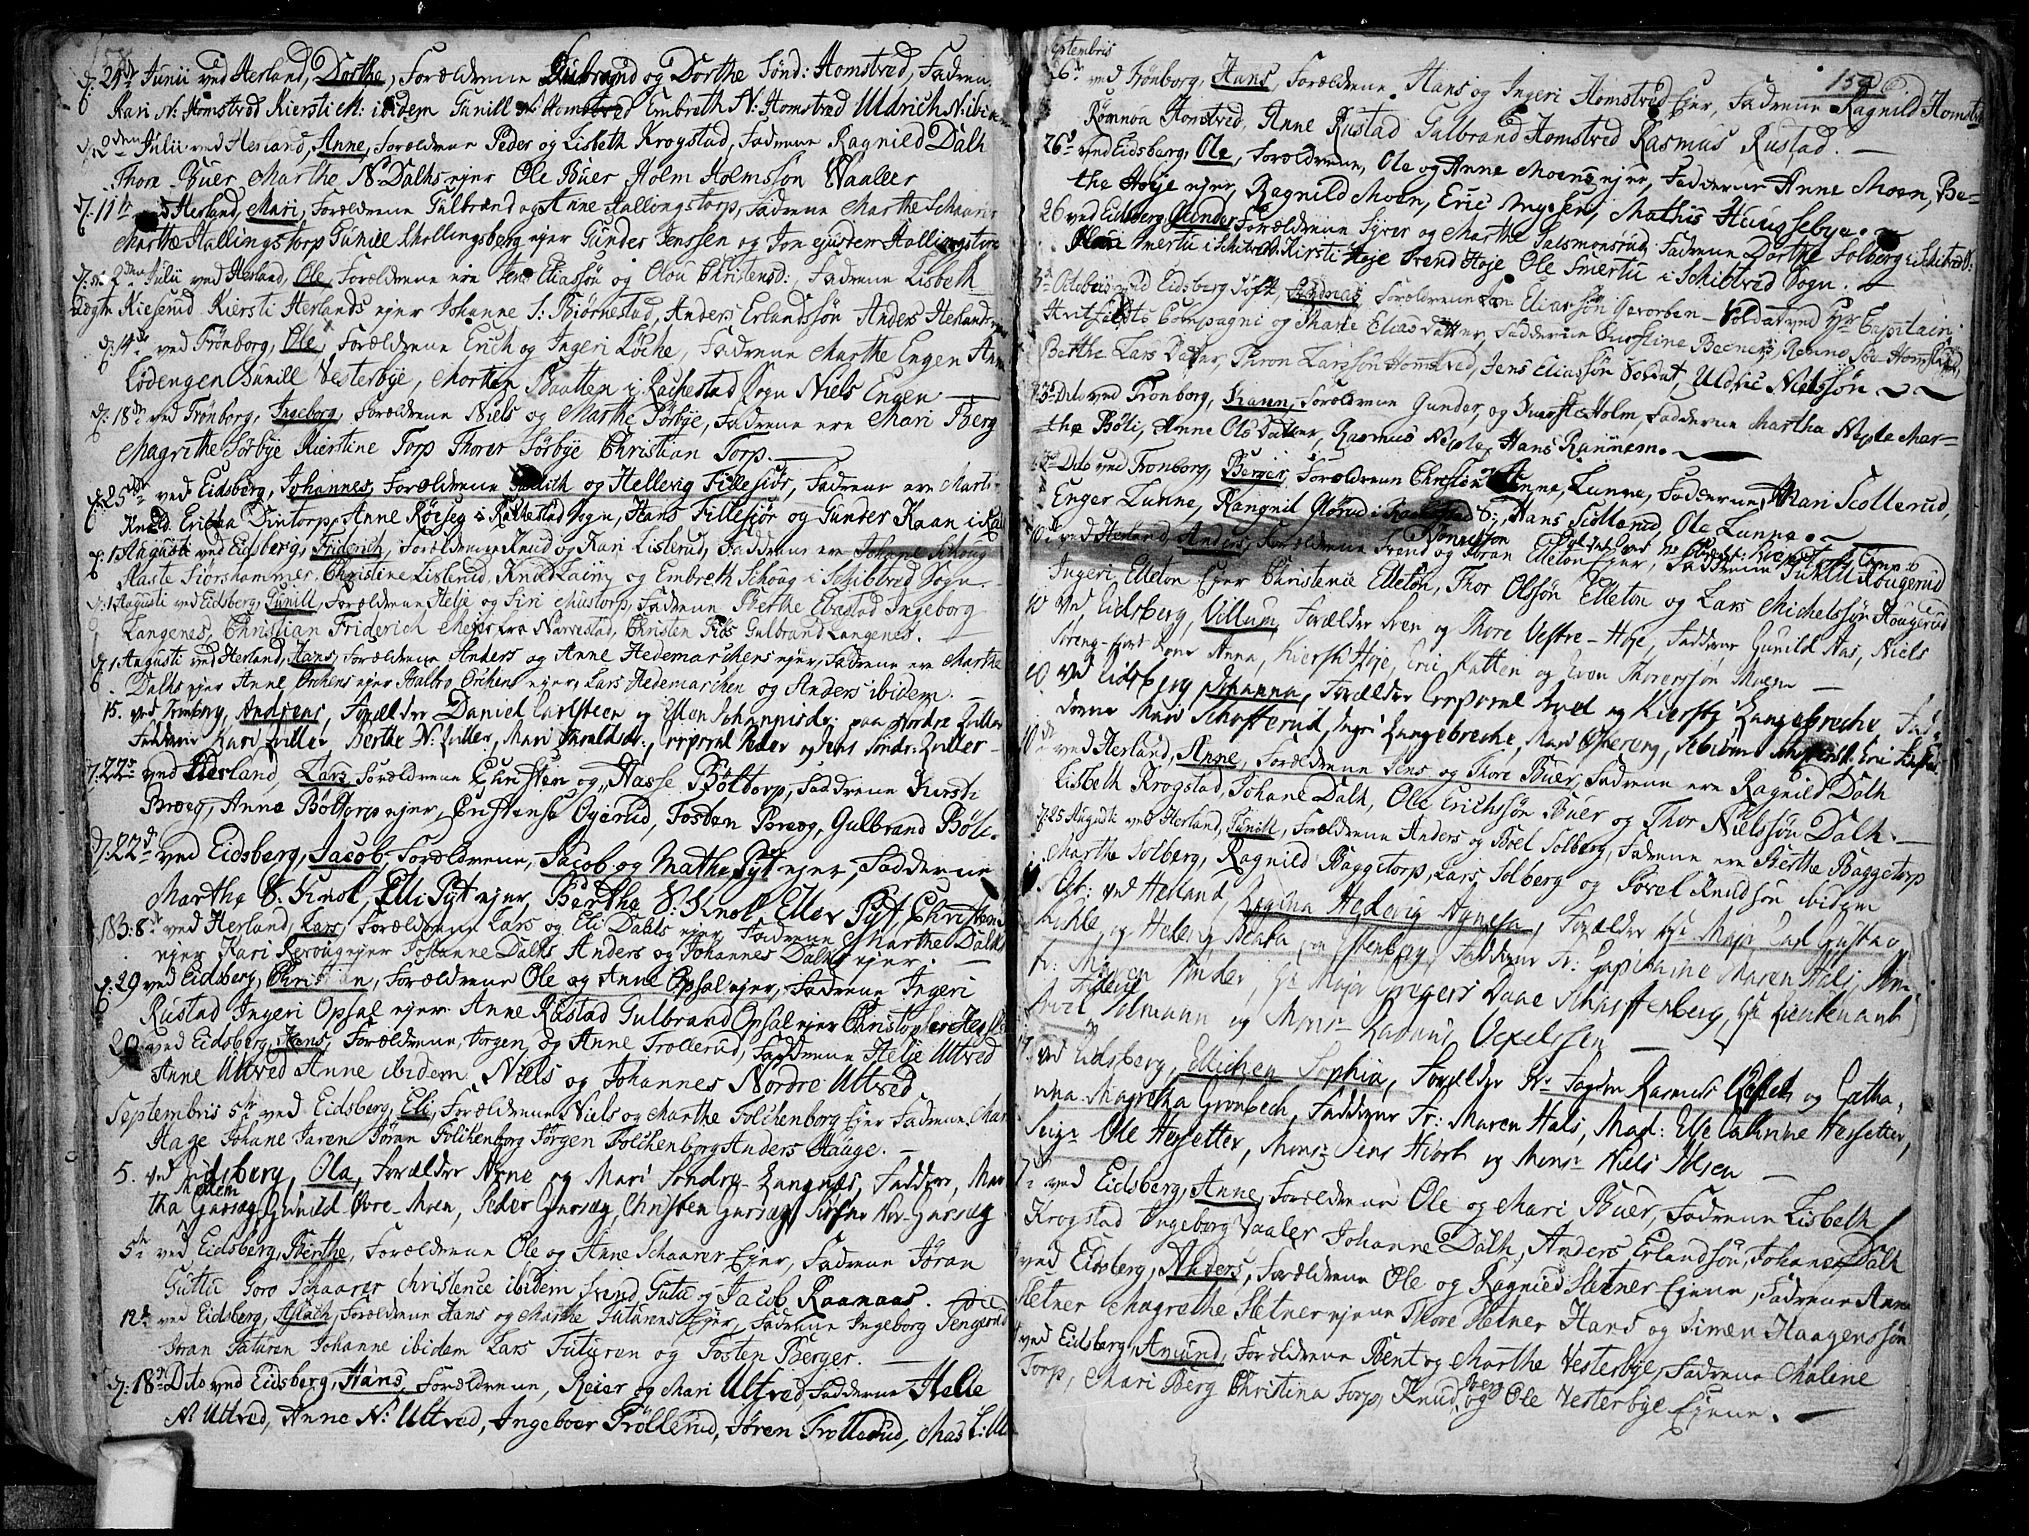 158
d: 24de Junii ved Herland, Dorthe, Forældrene Gulbrand og Dorthe Sönd: Homstved, Fadrene
Kari N: Homstved Kierstie N: ibidem Gunill N: Homstved Embreth N: Homstved Uldrich N: ibidem
d: 2den Julii ved Herland, Anne, Forældrene Peder og Lisbeth Krogstad, Fadrene Ragnild Dalh
Thore Buer Marthe N: Dalhs ejer Ole Buer Holm Holmssön Waaler
d: 11te ved Herland, Mari, Forældrene Gulbrand og Anne Hallingstorp, Fadrene Marthe Schaarer
Marthe Hallingstorp Gunill Mollingsberg ejer Gunder Jenssen og Jon ejusdem Hallingstorp
2den Julii ved Herland, Ole, Forældrene ere Jens Eliassön og Olou Christensd: Fadrene Lisbeth
Kieserud Kiersti Herlands ejer Johanne S: Biörnestad, Anders Erlandssön Anders Herlands
d: 4de ved Trönborg, Ole, Forældrene Erich og Ingeri Löche, Fadrene Marthe Engen Anne
Lödengen Gunill Vesterbye, Morten Braatten i Rachestad Sogn Niels Engen
d: 18de ved Trönborg, Ingeborg, Forældrene Niels og Marthe Sörbye, Fadrene ere Mari Berg
Magrethe Sörbye Kierstine Torp Thorer Sörbye Christian Torp.
d: 25de ved Eidsberg, Johannes, Forældrene og Hellevig Fillesiör, Fadrene ere Marte
Knold Ericka Dintorp, Anne Röiseg i Rachestad Sogn, Hans Fillesjör og Gunder Kaan i
d: 1 Augusti ved Eidsberg, Friderich, Forældrene Knud og Kari Lislerud, Faddrene ere Johane Schoug
Marte Siörshammer, Christine Lislerud, Knud Laimy og Embreth Schoug i Schibtved Sogn.
d: 1 Augusti ved Eidsberg, Gunill, Forældrene Helje og Siri Mustorp, Fadrene Berthe Ebustad Ingeborg
Langenes, Christian Friderich Meier fra Narvestad, Christen Fiös Gulbrand Langenes.
d: 1 Augusti ved Herland, Hans, Forældrene Anders og Anne Hedemarchens ejer, Fadrene ere Marthe
Dalhs ejer Anne Orchens ejer Aalbro Orchens ejer, Lars Hedemarchen og Anders ibidem.
15. ved Tronborg, Andreas, Forældre Daniel Carlsteen og Ellen Johannisdr: paa Nordre Zviller
Faddere Kari Zviller, Berthe N: Zviller, Mari Haraldsdr:, Corporal Peder og Jens Söndr: Zviller
d: 22de ved Herland, Lars Forældrene Christen og Aasse Böltorp, Faddrene Kiersti
Bræg, Anne Böltorp ejer, Christense Ogerud, Tosten Bræg, Gulbrand Böli.
d: 22d ved Eidsberg, Jacob, Forældrene, Jacob og Mathe Pyt ejer, Faddrene
Marthe S: Knol, Elli Pyt ejer, Berthe S: Knol Eller Pyt, Christen
8de ved Herland, Lars, Forældrene Lars og Eli Dahls ejer, Fadrene Marthe Dalhs
ejer Kari Kerougejer Johanne Dalhs Anders og Johannes Dalhs ejer.
d: 29 ved Eidsberg, Christian, Forældrene Ole og Anne Opsal ejer, Fadrene Ingeri
Rustad Ingeri Opsal ejer Anne Röstad Gulbrand Opsal ejer Christopher
29 ved Eidsberg, Hans, Forældrene, Jorgen og Anne Trollerud, Faddrene Helje Ultved
Anne Ultved Anne ibidem Niels og Johannes Nordre Ultved
Septembris 5te ved Eidsberg, Eli, Forældrene Niels og Marthe Folchenborg Ejer Fadrene Mari
Hage Johane Jaren Jöran Folchenborg Jörgen Folchenborg Anders Hauge.
5. ved Eidsberg, Ola, Forælder Arne og Mari Sondre Langnes, Faddere, Mar
tha Mellem Garseg, Gunild Övre-Moen, Peder Garseg, Christen Garseg, Garseg
5te ved Eidsberg, Berthe, Forældrene Ole og Anne Schaarer Ejer, Fadrene Jöran
Guttu Goro Schaarer Christence ibidem Svend Gutu og Jacob Raanaas.
12te ved Eidsberg, Aslach, Forældrene Hans og Marthe Futurens Ejer, Fadrene Ingeborg Tengerud
Jöran Futuren Johanne ibidem Lars Futuren og Tosten Berger.
d: 18de Dito ved Eidsberg, Hans, Forældrene, Reier og Mari Ultved, Faddrene Helle
N: Ultved, Anne N: Ultved, Ingeboer Tröllerud, Jören Trollerud, Mas
159
Septembris
26de ved Trönborg, Hans, Forældrene Hans og Ingeri Homstved Ejer, Fadrene Ragnild Homstved
Römnoa Homstved, Anne Rustad Gulbrand Homstved Rasmus Rustad.
26d ved Eidsberg, Ole, Forældrene, Ole og Anne Moens ejer, Faddrene Anne Moen, Be-
the Höje ejer, Ragnild Moen, Eric Mysen, Mathis Huugsebye.
26 ved Eidsberg, Gunder Forældrene Syver og Marthe Salsmonsrud, Fadrene Dorthe Solberg i Schibtved
Smertu i Schibtved: Kirsti Höje Svend Höje Ole Smertu i Schibtved Sogn.
Octobris ved Eidsberg Döbt, Andreas Forældrene Eliassön Gevorben Soldat ved Hr Capitain
Hvitfeldts Compagni og Marte Elias datter, Fadderne Kierstine Beeners,
Berthe Lars Datter, Thron Larssön Homstved, Jens Eliassön Soldat, Uldric Nielssön
Dito ved Tronborg, Karen, Forældrene Gunder, og Holm, Faddrene Martha Neple Mar-
the Böli, Anne Ols Datter, Rasmus Neple, Hans Rammem.
Dito ved Tronborg, Berger, Forældrene Christen og Anne, Lunne, Fadderne, Mari Scollerud,
Enger Lunne, Rangnil Glörud i S:, Hans Scollerud, Ole Lunne.
10de ved Herland, Anders, Forældrene Svend og Jöran Elleton Ejer, Faddrene Gunill Hougerud
Ingeri Elleton Ejer Christence Elleton, Thor Olssön Elleton og Lars Michelssön Hougerud
10 ved Eidsberg, Villum, Forælder Sven og Thore Vestre-Hoje, Faddere Gunild Aas, Niels
kone Anna, Kiersti Hoje, Eric Katten og Even Thorerssön Moen
10. ved Eidsberg Johanna, Forælder Corporal Axel og Kiersty Langebreche Fad-
derne Mari Schofterud, Ingri Langebreche, Mari
10de ved Herland, Anne, Forældrene Jens og Thore Buer, Fadrene ere Ragnild Dalh
Lisbeth Krogstad, Johane Dalh, Ole Erichssön Buer og Thor Nielssön Dalh.
d: 25 Augusti ved Herland, Gunill, Forældrene Anders og Boel Solberg, Fadrene ere Berthe Baggetorp
Marthe Solberg, Ragnild Baggetorp, Lars Solberg og Povel Knudssön ibidem
ved Herland, Regina Hedevig Agnesa, Forælder Hr Major Carl Gustav
og Helena Beata Faddere Fr: Capitaine Maren Hals,
Hr Major Gregers Daae Hr Lieutenant
Povel Solmann og Monsr Rasmus Vexelssen
ved Eidsberg, Ellichen Sophia, Forælder Hr Fogden Rasmus og Catha-
rina Magretha Gronbech, Faddere Fr: Maren Hals, Mad: Else Catharine Hessetter,
Seigr Ole Hessetter, Monsr Jens Hiort og Monsr Niels Ibsen
ved Eidsberg, Anne, Forældrene Ole og Mari Buer, Fadrene Lisbeth
Krogstad Ingeborg Vaaler Johanne Dalh, Anders Erlandssön, Johanes Dalh
ved Eidsberg, Anders, Forældrene Ole og Ragnild Sletner Ejene, Fadrene Anne
Sletner Magrethe Sletner ejene Thore Sletner Hans og Simen Haagenssön
ved Eidsberg, Amund, Forældrene Bent og Marthe Vesterbye, Fadrene Malene
Torp, Mari Berg Christina Torp, Knud Berg og Ole Vesterbye Ejene.